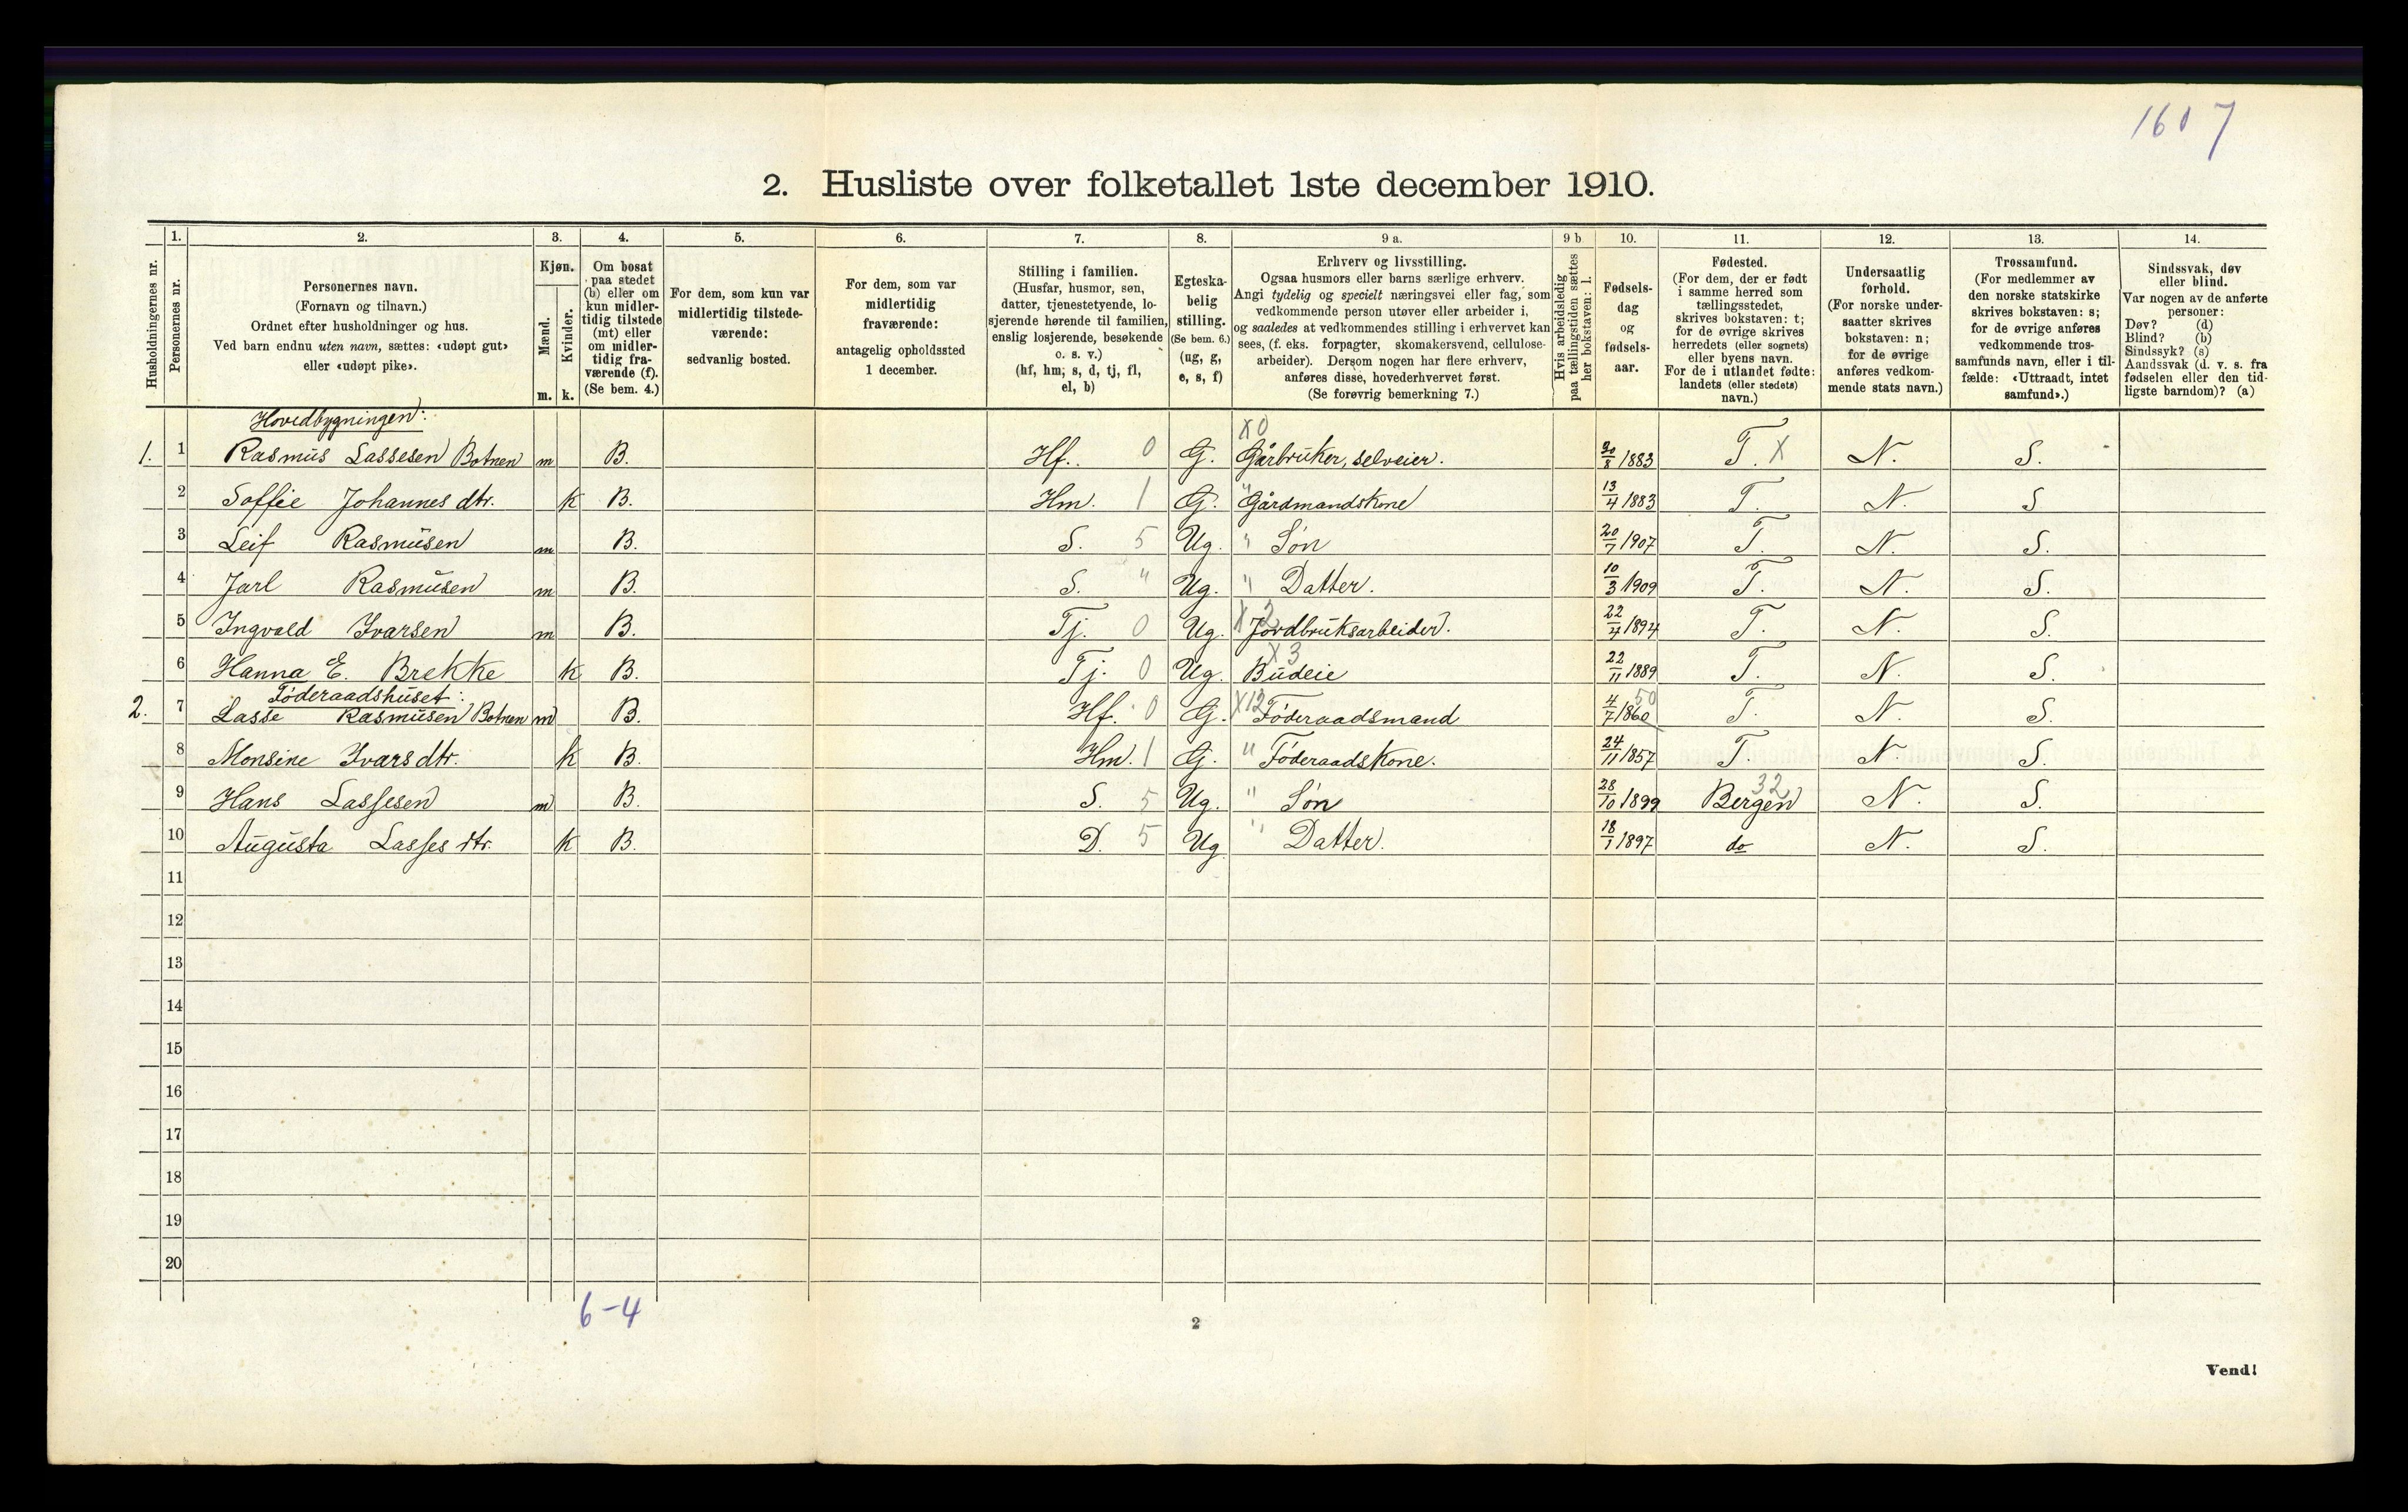 1607
2. Husliste over folketallet 1ste december 1910.
Husholdningernes nr.
1. Personernes nr.
2. Personernes navn.
(Fornavn og tilnavn.)
Ordnet efter husholdninger og hus.
Ved barn endnu uten navn, sættes: «udøpt gut»
eller «udøpt pike».
3. Kjøn.
Mænd. m.
Kvinder. k.
4. Om bosat
paa stedet
(b) eller om
kun midler-
tidig tilstede
(mt) eller
om midler-
tidig fra-
værende (f).
(Se bem. 4.)
5. For dem, som kun var
midlertidig tilstede-
værende:
sedvanlig bosted.
6. For dem, som var
midlertidig
fraværende:
antagelig opholdssted
1 december.
7. Stilling i familien.
(Husfar, husmor, søn,
datter, tjenestetyende, lo-
sjerende hørende til familien,
enslig losjerende, besøkende
o. s. v.)
(hf, hm, s, d, tj, fl,
el, b)
8. Egteska-
belig
stilling.
(Se bem. 6.)
(ug, g,
e, s, f)
9 a. Erhverv og livsstilling.
Ogsaa husmors eller barns særlige erhverv.
Angi tydelig og specielt næringsvei eller fag, som
vedkommende person utøver eller arbeider i,
og saaledes at vedkommendes stilling i erhvervet kan
sees, (f. eks. forpagter, skomakersvend, cellulose-
arbeider). Dersom nogen har flere erhverv,
anføres disse, hovederhvervet først.
(Se forøvrig bemerkning 7.)
9 b Hvis arbeidsledig
paa tællingstiden sættes
her bokstaven: l.
10. Fødsels-
dag
og
fødsels-
aar.
11. Fødested.
(For dem, der er født
i samme herred som
tællingsstedet,
skrives bokstaven: t;
for de øvrige skrives
herredets (eller sognets)
eller byens navn.
For de i utlandet fødte:
landets (eller stedets)
navn.)
12. Undersaatlig
forhold.
(For norske under-
saatter skrives
bokstaven: n;
for de øvrige
anføres vedkom-
mende stats navn.)
13. Trossamfund.
(For medlemmer av
den norske statskirke
skrives bokstaven: s;
for de øvrige anføres
vedkommende tros-
samfunds navn, eller i til-
fælde: «Uttraadt, intet
samfund».)
14. Sindssvak, døv
eller blind.
Var nogen av de anførte
personer:
Døv? (d)
Blind? (b)
Sindssyk? (s)
Aandssvak (d. v. s. fra
fødselen eller den tid-
ligste barndom)? (a)
Hovedbygningen:
1. 1 Rasmus Lassesen Botnen m B. Hf. 0 G. X0 Gårbruker, selveier. 30/8 1883 T. X N. S.
2 Soffie Johannes dtr. k B. Hm. 1 G. " Gårdmandskone 13/4 1883 T. N. S
3 Leif Rasmusen m B. S. 5 Ug. " Søn 20/7 1907 T. N. S.
4 Jarl Rasmusen m B. S. " Ug. " Datter. 10/3 1909 T. N. S.
5 Ingvald Ivarsen m B. Tj. 0 Ug. X2 Jordbruksarbeider. 22/4 1894 T. N. S.
6 Hanna E. Brekke k B. Tj. 0 Ug. X3 Budeie 22/11 1889 T. N. S.
Føderaadshuset:
2. 7 Lasse Rasmusen Botnen m B. Hf. 0 G. X12 Føderaadsmand 4/7 1860 50 T. N. S.
8 Monsine Ivars dtr. k B. Hm. 1 G. " Føderaadskone. 24/11 1857 T. N. S.
9 Hans Lassesen m B. S. 5 Ug. " Søn 28/10 1899 Bergen 32 N. S.
10 Augusta Lasses dtr. k B. D. 5 Ug " Datter. 18/1 1897 do N. S.
11
12
13
14
15
16
17
18
19
20
6-4
2
Vend!